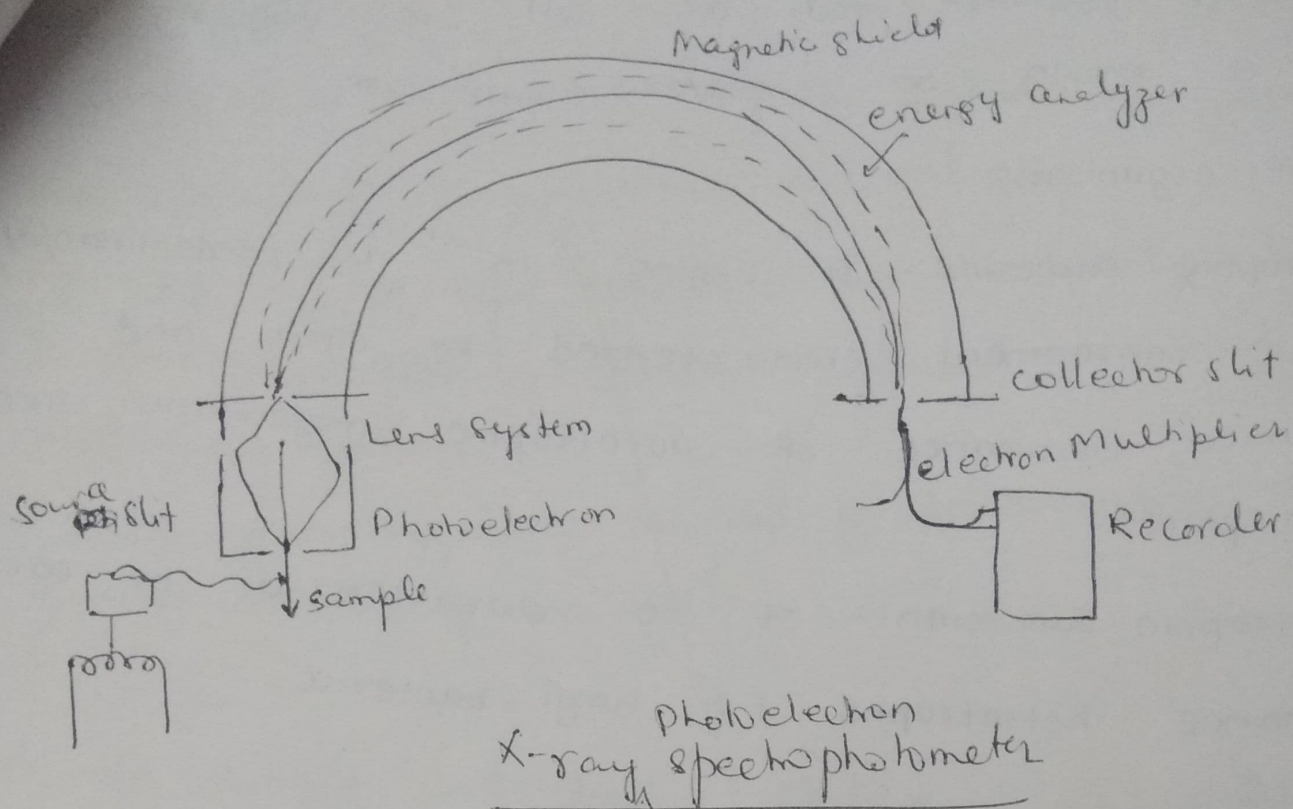 Magnetic shield
energy analyzer
collector slit
Lens system
electron Multiplier
slit
Photoelectron
Recorder
sample
photoelectron
X-ray spectrophotometer